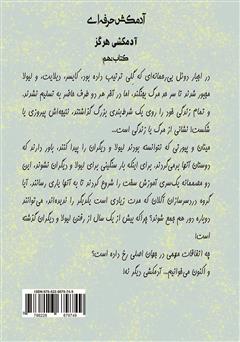 آدمکش حرفه‌ای
آدمکشی هرگز
کتاب دهم
در اجبار دوئل بی‌رحمانه‌ای که گلی ترتیب داده بود، کایسر، دیلایت، و لیولا
مجبور شدند تا سر حد مرگ بجنگند، اما در آخر هر دو طرف حاضر به تسلیم نشدند.
و تمام زندگی خود را روی یک شرط‌بندی بزرگ گذاشتند، نتیجه‌اش پیروزی یا
شکست! نشانی از مرگ یا زندگی است...
میتان و پیورتی که توانسته بودند لیولا و دیگران را پیدا کنند، باور دارند که
دوستان آنها برمی‌گردند. برای اینکه بار سنگینی برای لیولا و دیگران نشوند، این
دو مصممانه یک‌سری آموزش سخت را شروع کردند تا به آنها یاری رسانند. آیا
گروه دردسرسازان آلکان که مدت زیادی است یکدیگر را ندیده‌اند، می‌توانند
دوباره دور هم جمع شوند؟ چراکه بیش از یک سال از رفتن لیولا و دیگران گذشته
است!
چه اتفاقات مهمی در جهان اصلی رخ داده است؟
و اکنون می‌خوانیم... آدمکشی دیگر نه!
ISBN: 978-622-6678-74-9
9 786226 678749